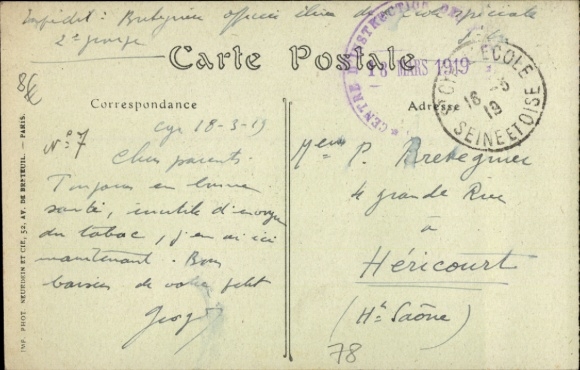 Expédit: Bretegnier officier élève de l'école spéciale
2e groupe St Cyr
Carte Postale
CENTRE D'INSTRUCTION
18 MARS 1919
ST CYR L'ECOLE
18-3
19
SEINE ET OISE
Correspondance
Adresse
N° 7
Cyr 18-3-19
Chers parents.
Toujours en bonne
santé, inutile d'envoyer
du tabac, j'en ai ici
maintenant. Bons
baisers de votre petit
Georges
P. Bretegnier
4 grande Rue
à
Héricourt
(Hte Saône)
78
IMP. PHOT. NEURDEIN ET CIE, 52, AV. DE BRETEUIL. — PARIS.